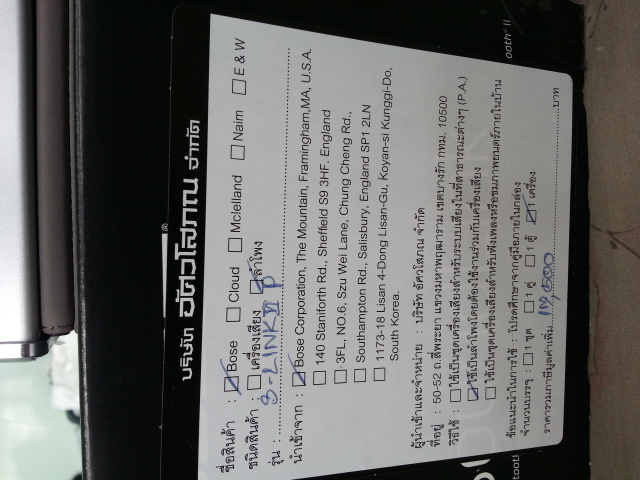 บริษัท อัศวโสภณ จำกัด
ชื่อสินค้า : ☑ Bose ☐ Cloud ☐ Mclelland ☐ Naim ☐ E & W
ชนิดสินค้า : ☐ เครื่องเสียง ☑ ลำโพง
รุ่น :
นำเข้าจาก : ☑ Bose Corporation, The Mountain, Framingham,MA, U.S.A.
☐ 140 Staniforth Rd., Sheffield S9 3HF. England
☐ 3FL, NO.6, Szu Wei Lane, Chung Cheng Rd.,
☐ Southampton Rd., Salisbury, England SP1 2LN
☐ 1173-18 Lisan 4-Dong Lisan-Gu, Koyan-si Kunggi-Do,
South Korea.
ผู้นำเข้าและจำหน่าย : บริษัท อัศวโสภณ จำกัด
ที่อยู่ : 50-52 ถ.สี่พระยา แขวงมหาพฤฒาราม เขตบางรัก กทม. 10500
วิธีใช้ : ☐ ใช้เป็นชุดเครื่องเสียงสำหรับระบบเสียงในที่สาธารณะต่างๆ (P.A.)
☑ ใช้เป็นลำโพงโดยต้องใช้งานร่วมกับเครื่องเสียง
☐ ใช้เป็นชุดเครื่องเสียงสำหรับฟังเพลงหรือชมภาพยนตร์ภายในบ้าน
ข้อแนะนำในการใช้ : โปรดศึกษาจากคู่มือภายในกล่อง
จำนวนบรรจุ : ☐ 1 ชุด ☐ 1 คู่ ☐ 1 ตู้ ☑ 1 เครื่อง
ราคารวมภาษีมูลค่าเพิ่ม บาท
ooth® II